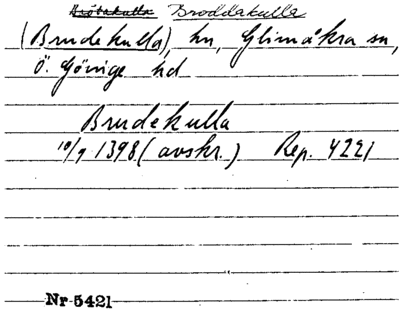 Broddakulla
(Brudekulla), hn, Glimåkra sn,
Ö. Göinge hd
Brudekulla
10/9 1398 (avskr.) Rep. 4221
Nr 5421